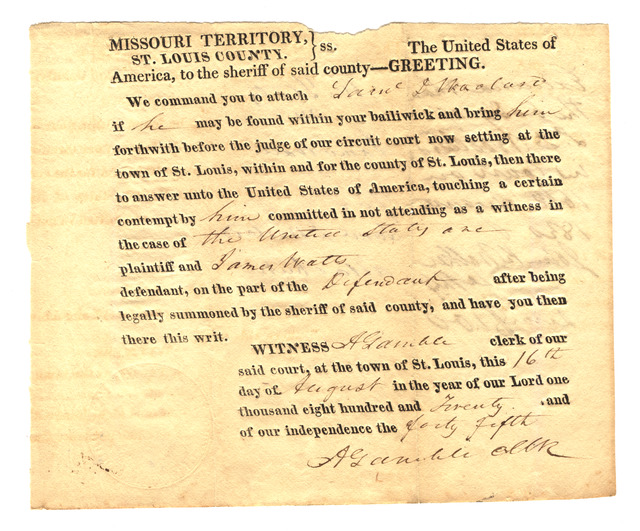 MISSOURI TERRITORY, } ss. The United States of
ST. LOUIS COUNTY.
America, to the sheriff of said county—GREETING.
We command you to attach
if he may be found within your bailiwick and bring him
forthwith before the judge of our circuit court now setting at the
town of St. Louis, within and for the county of St. Louis, then there
to answer unto the United States of America, touching a certain
contempt by him committed in not attending as a witness in
the case of the United States are
plaintiff and James Watts
defendant, on the part of the Defendant after being
legally summoned by the sheriff of said county, and have you then
there this writ.
WITNESS A Gamble clerk of our
said court, at the town of St. Louis, this 16th
day of August in the year of our Lord one
thousand eight hundred and Twenty and
of our independence the forty fifth
A Gamble Clk